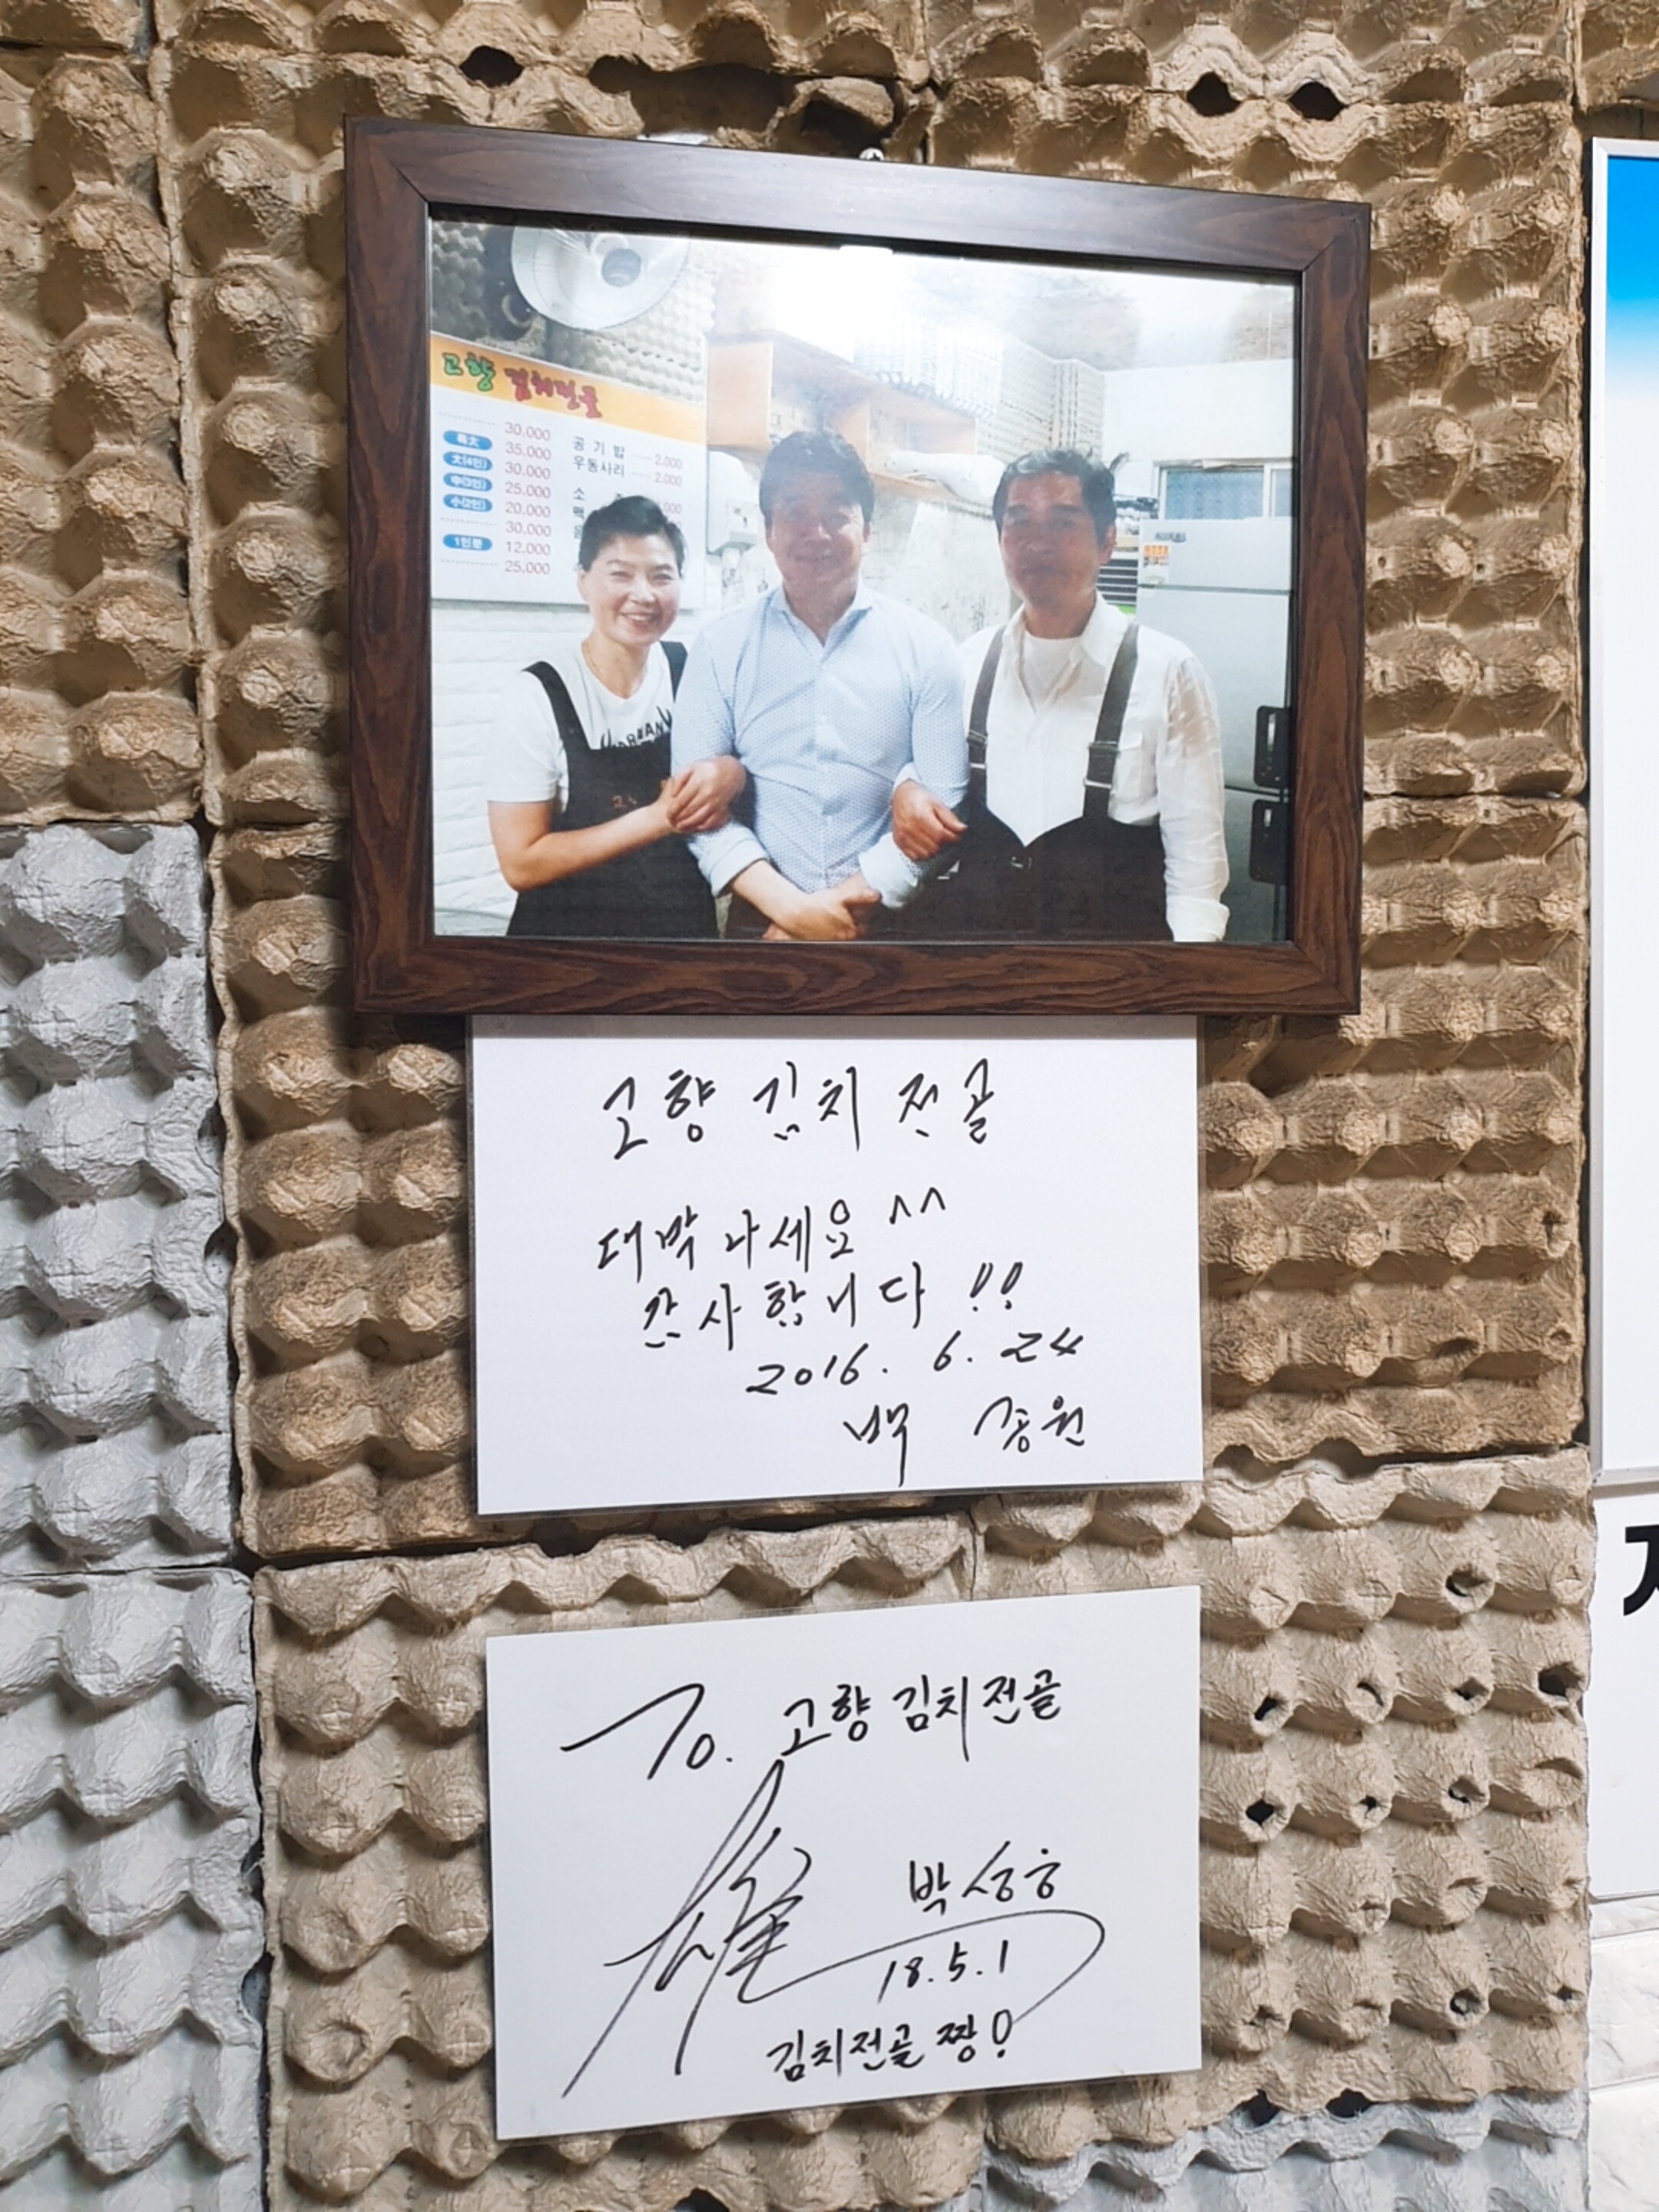 고향 김치전골
30,000
특大 35,000
大(4인) 30,000
中(3인) 25,000
小(2인) 20,000
30,000
1인분 12,000
25,000
공기밥 2,000
우동사리 2,000
소
맥
고향 김치 전골
대박 나세요 ^^
감사합니다 !!
2016. 6. 24
백 종원
To. 고향 김치전골
박성웅
18.5.1
김치전골 짱!